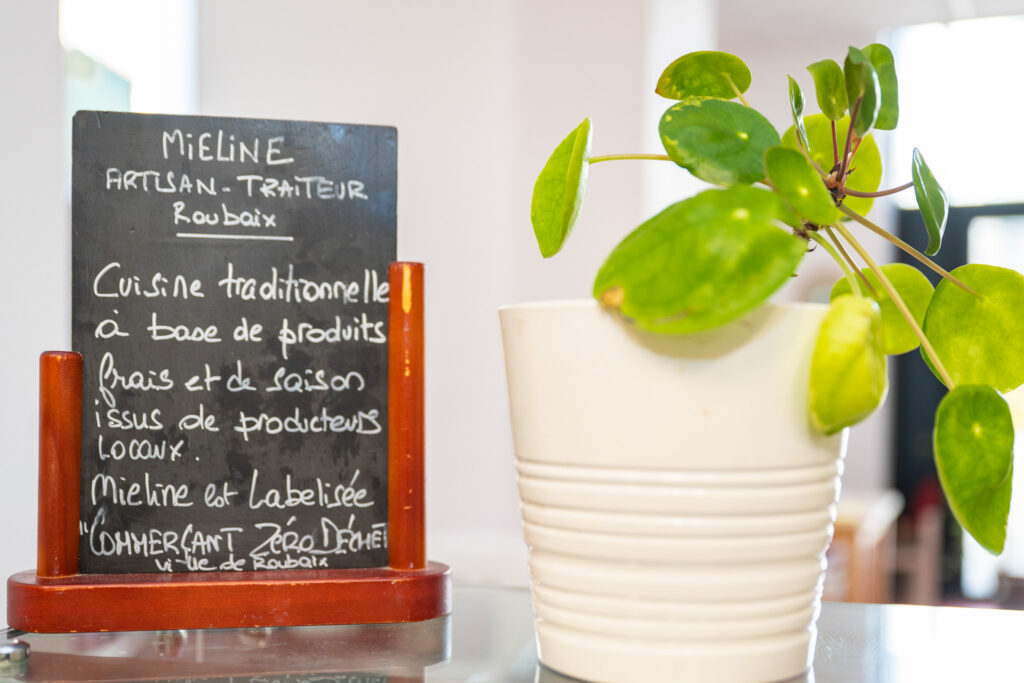 MiELiNE
ARTISAN-TRAITEUR
Roubaix
Cuisine traditionnelle
à base de produits
frais et de saison
issus de producteurs
Locaux.
Mieline est Labelisée
"COMMERÇANT ZéRo DÉCHET
ville de Roubaix